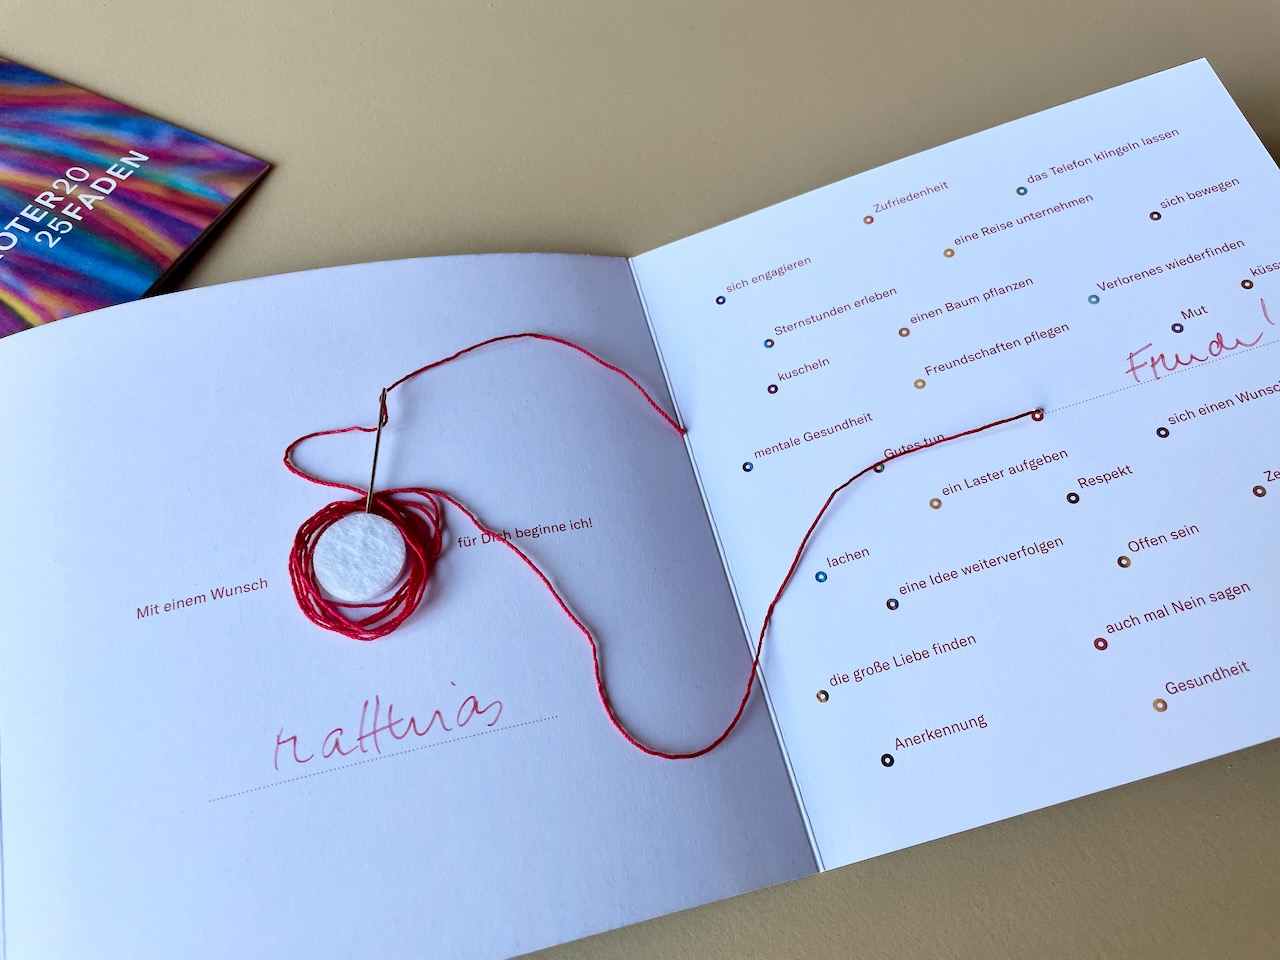 OTER20
25FADEN
Mit einem Wunsch
für Dich beginne ich!
Matthias
das Telefon klingeln lassen
Zufriedenheit
sich bewegen
eine Reise unternehmen
sich engagieren
Verlorenes wiederfinden
Sternstunden erleben
einen Baum pflanzen
Mut
kuscheln
Freundschaften pflegen
Freude!
mentale Gesundheit
Gutes tun
sich einen Wunsc
ein Laster aufgeben
Respekt
Ze
lachen
Offen sein
eine Idee weiterverfolgen
auch mal Nein sagen
die große Liebe finden
Gesundheit
Anerkennung